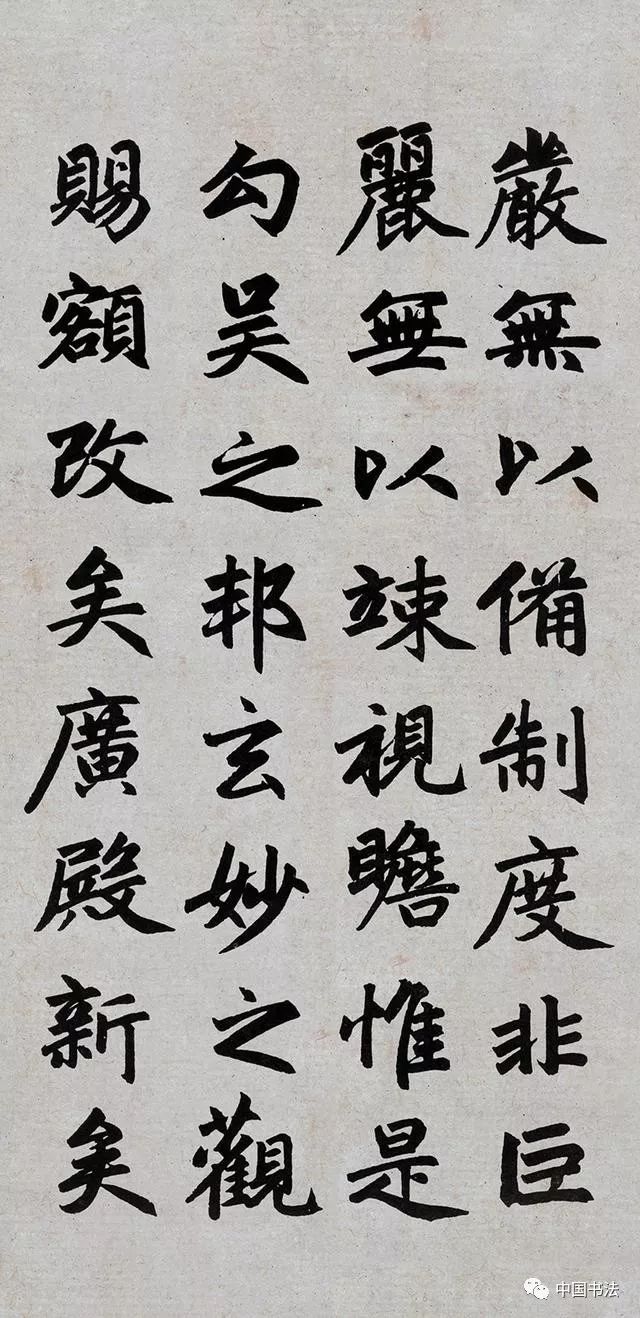 嚴無以備制度非巨
麗無以竦視瞻惟是
勾吴之邦玄妙之觀
賜額改矣廣殿新矣
中国书法